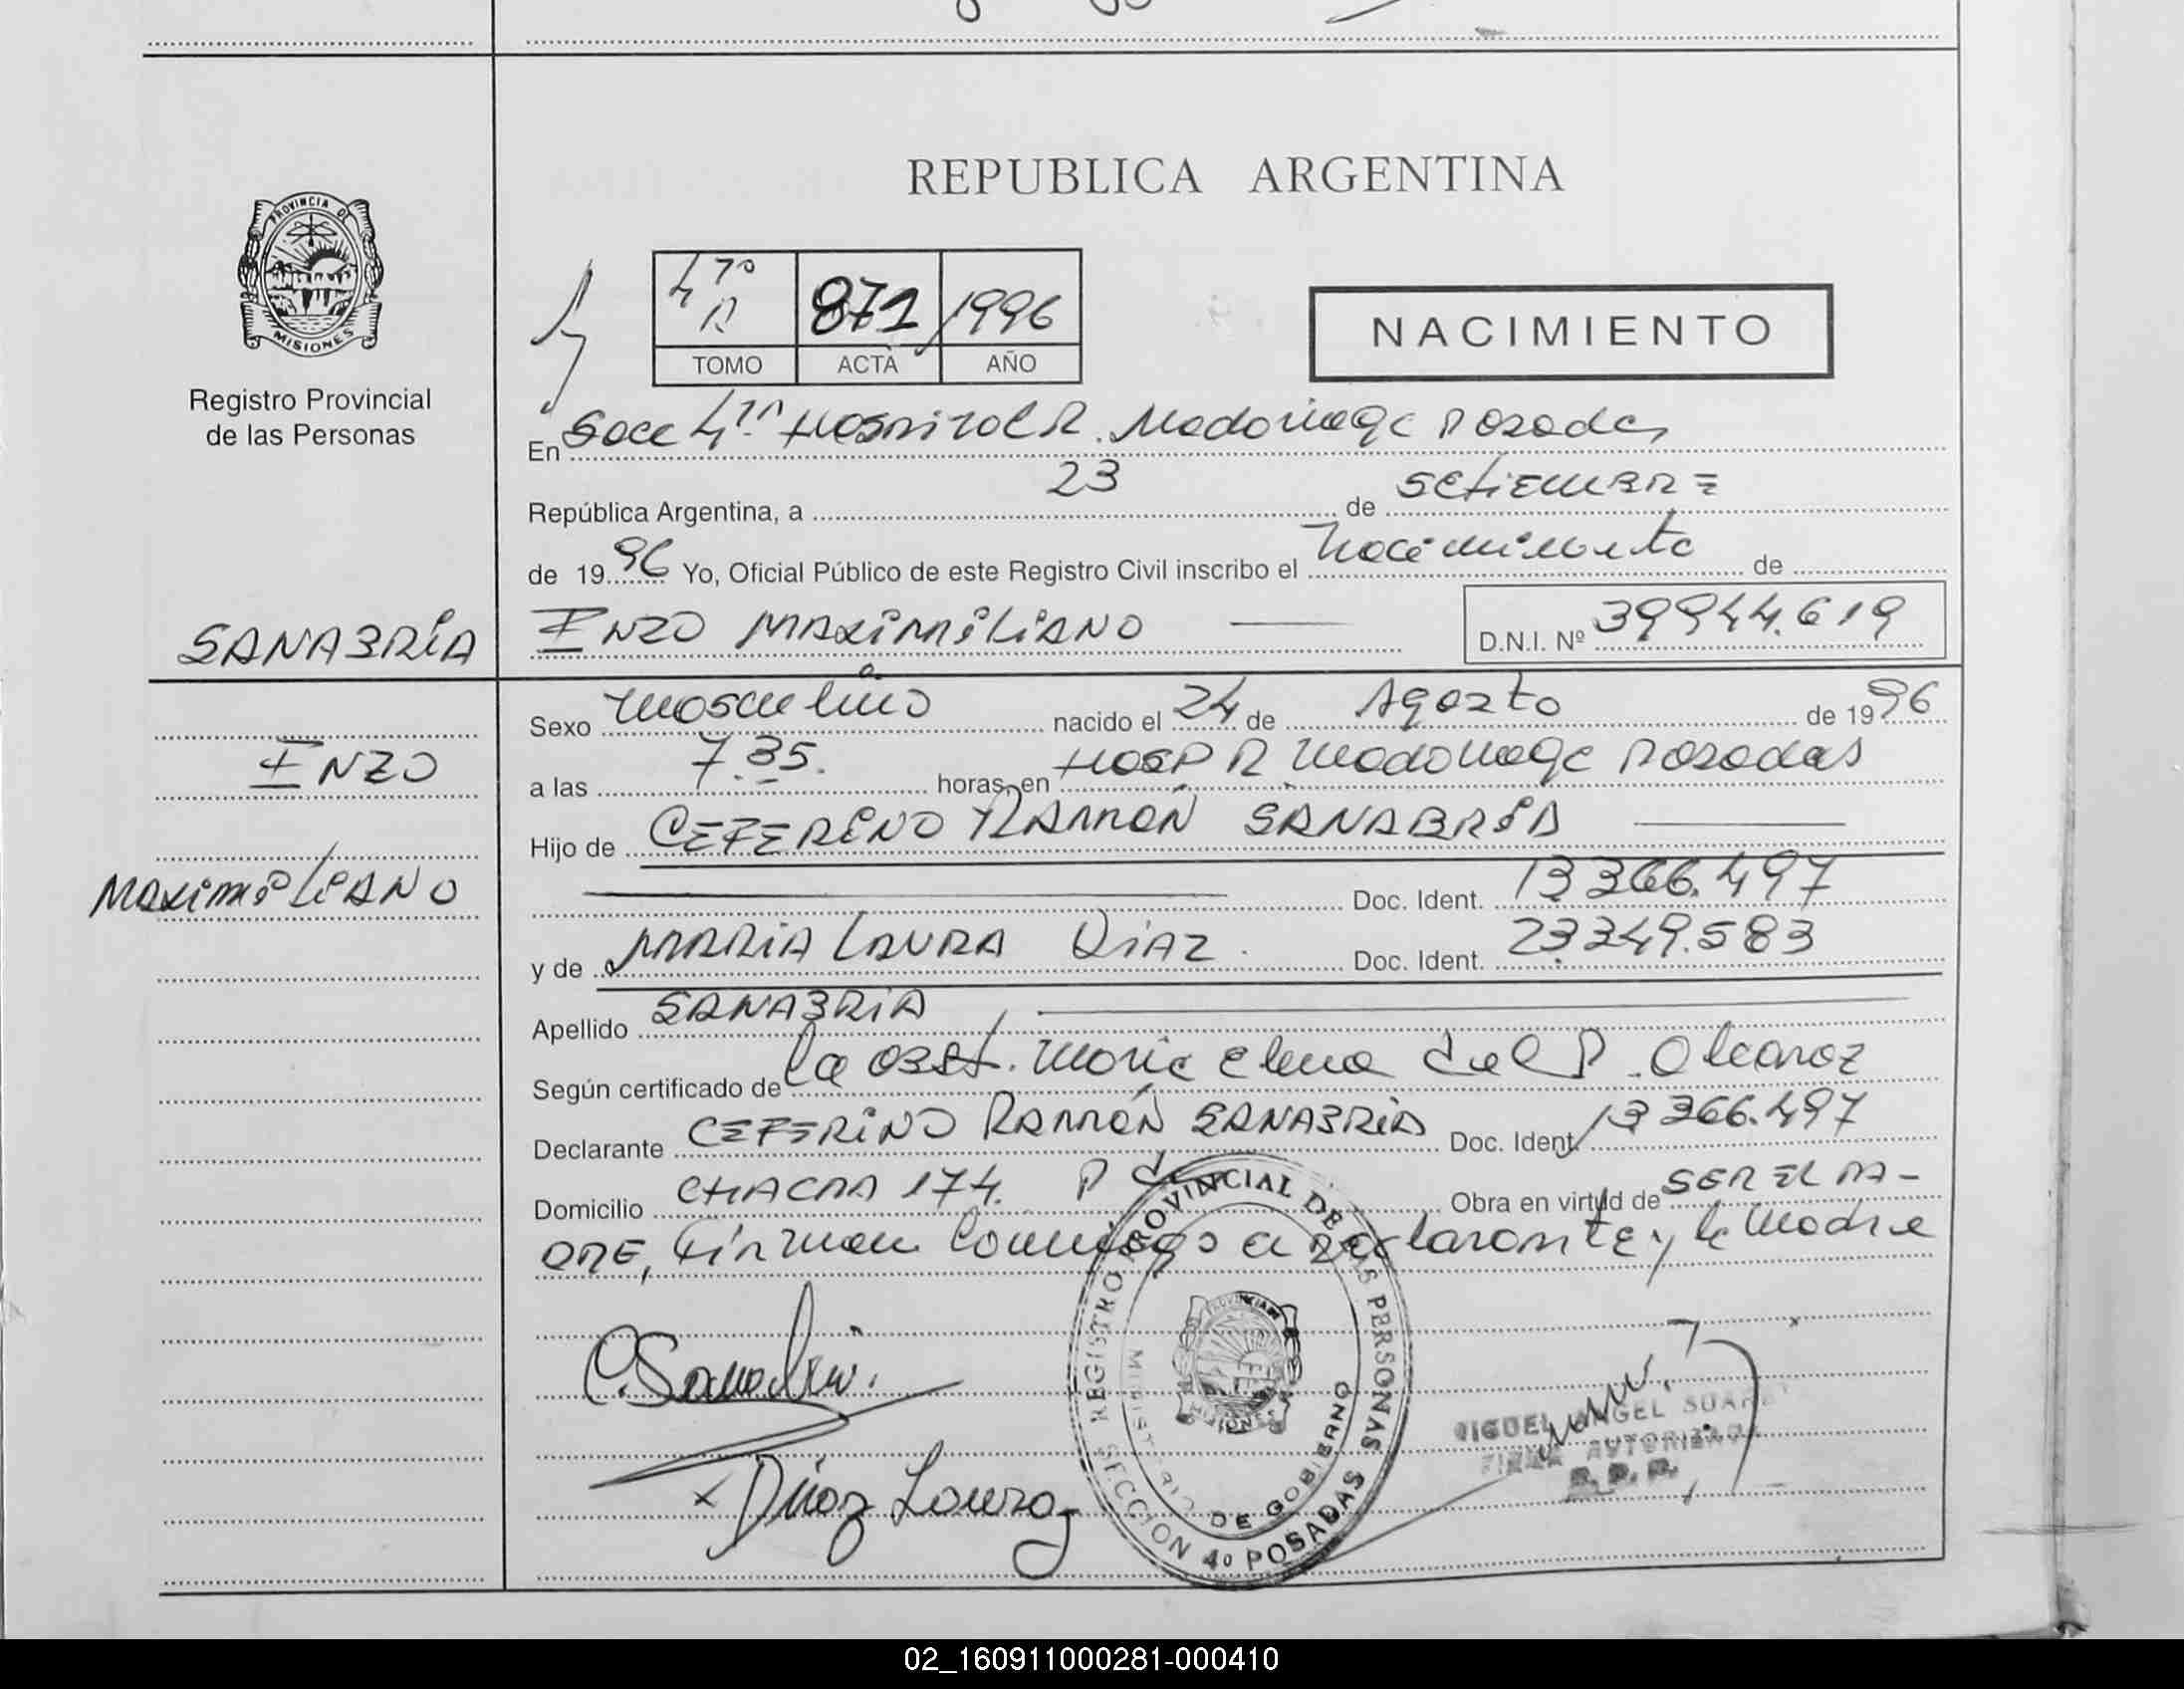 REPUBLICA ARGENTINA
PROVINCIA DE
MISIONES
Registro Provincial
de las Personas
4 TO 871 1996
TOMO ACTA AÑO
NACIMIENTO
En Secc 4ta Hospital R. Madariaga Posadas
República Argentina, a 23 de setiembre
de 1996 Yo, Oficial Público de este Registro Civil inscribo el nacimiento de
SANABRIA
ENZO MAXIMILIANO
D.N.I. Nº 39944.619
Sexo masculino nacido el 24 de Agosto de 1996
ENZO
a las 7.35. horas en HOSP R Madariaga Posadas
Hijo de CEFERINO RAMÓN SANABRIA
MAXIMILIANO
Doc. Ident. 13366.497
y de MARIA LAURA DIAZ. Doc. Ident. 23.349.583
Apellido SANABRIA
Según certificado de la obst. Maria Elena del P. Alcaraz
Declarante CEFERINO RAMÓN SANABRIA Doc. Ident. 13366.497
Domicilio CHACRA 174. Obra en virtud de SER EL PA-
DRE, Firman conmigo el declarante y la Madre
C. Sanabria.
x Diaz Laura
REGISTRO PROVINCIAL DE LAS PERSONAS
MINISTERIO DE GOBIERNO
SECCION 4º POSADAS
MIGUEL ANGEL SUAREZ
FIRMA AUTORIZADA
R. P. P.
02_160911000281-000410